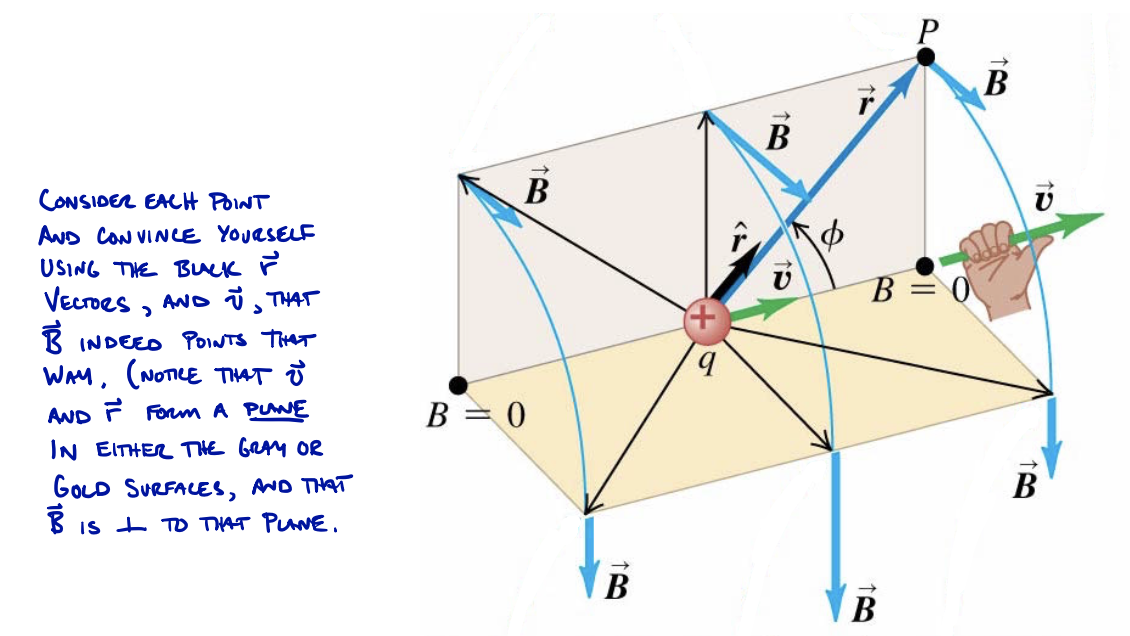 CONSIDER EACH POINT
AND CONVINCE YOURSELF
USING THE BLACK r⃗
VECTORS, AND v⃗, THAT
B⃗ INDEED POINTS THAT
WAY. (NOTICE THAT v⃗
AND r⃗ FORM A PLANE
IN EITHER THE GRAY OR
GOLD SURFACES, AND THAT
B⃗ IS ⊥ TO THAT PLANE.
P
B⃗
r⃗
B⃗
B⃗
v⃗
r̂
ϕ
v⃗
B = 0
+
q
B = 0
B⃗
B⃗
B⃗